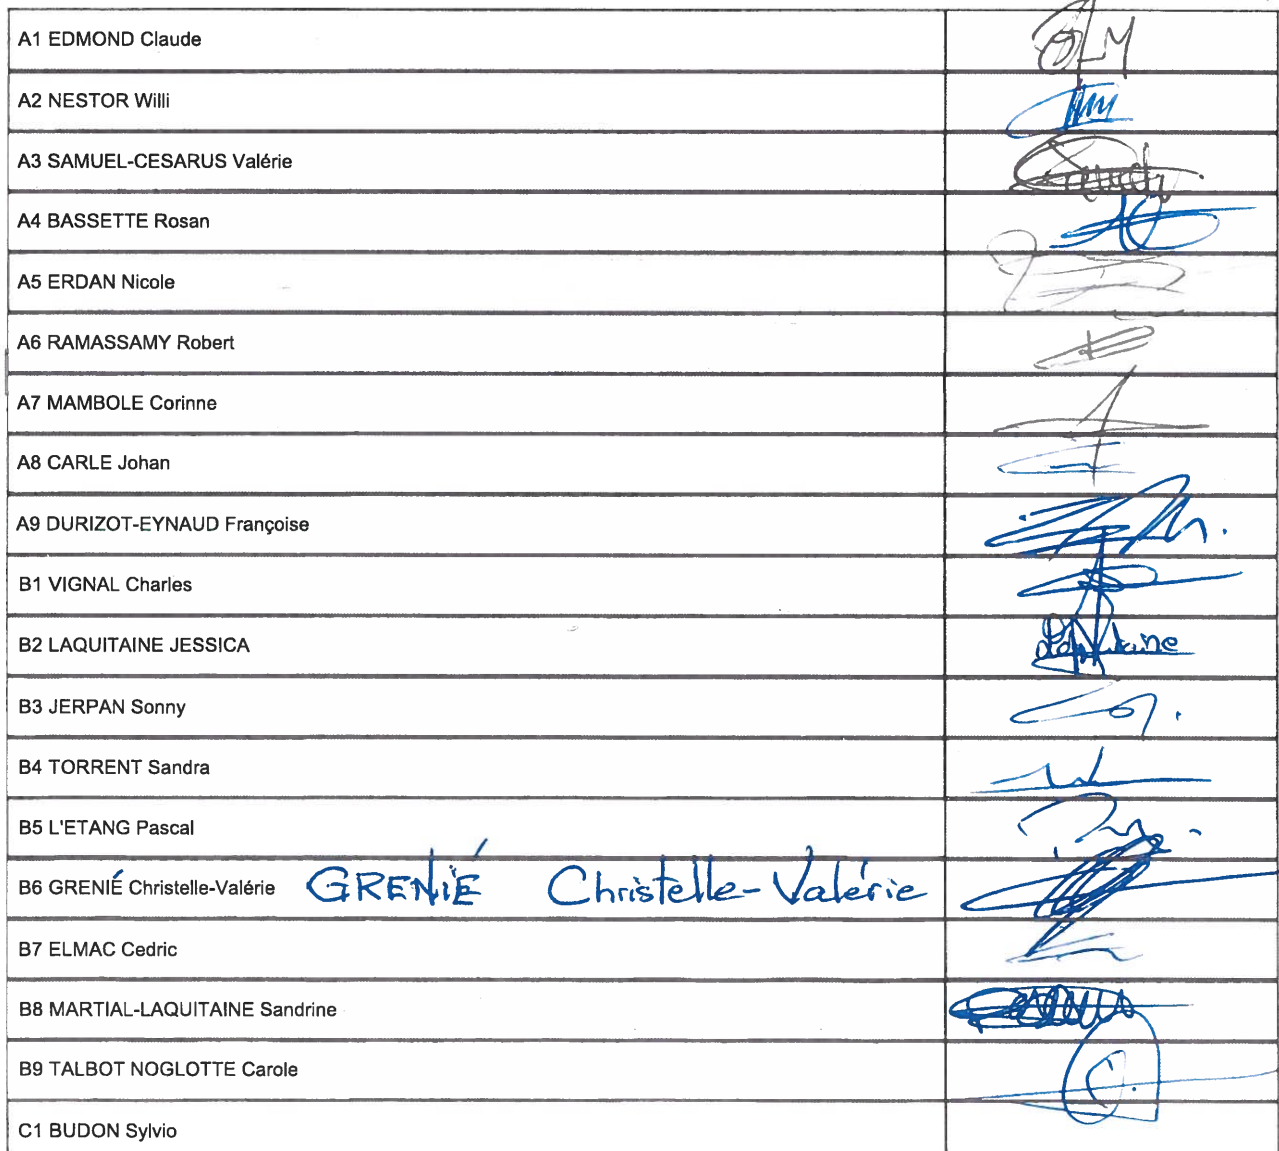 A1 EDMOND Claude
A2 NESTOR Willi
A3 SAMUEL-CESARUS Valérie
A4 BASSETTE Rosan
A5 ERDAN Nicole
A6 RAMASSAMY Robert
A7 MAMBOLE Corinne
A8 CARLE Johan
A9 DURIZOT-EYNAUD Françoise
B1 VIGNAL Charles
B2 LAQUITAINE JESSICA
B3 JERPAN Sonny
B4 TORRENT Sandra
B5 L'ETANG Pascal
B6 GRENIÉ Christelle-Valérie GRENIÉ Christelle-Valérie
B7 ELMAC Cedric
B8 MARTIAL-LAQUITAINE Sandrine
B9 TALBOT NOGLOTTE Carole
C1 BUDON Sylvio